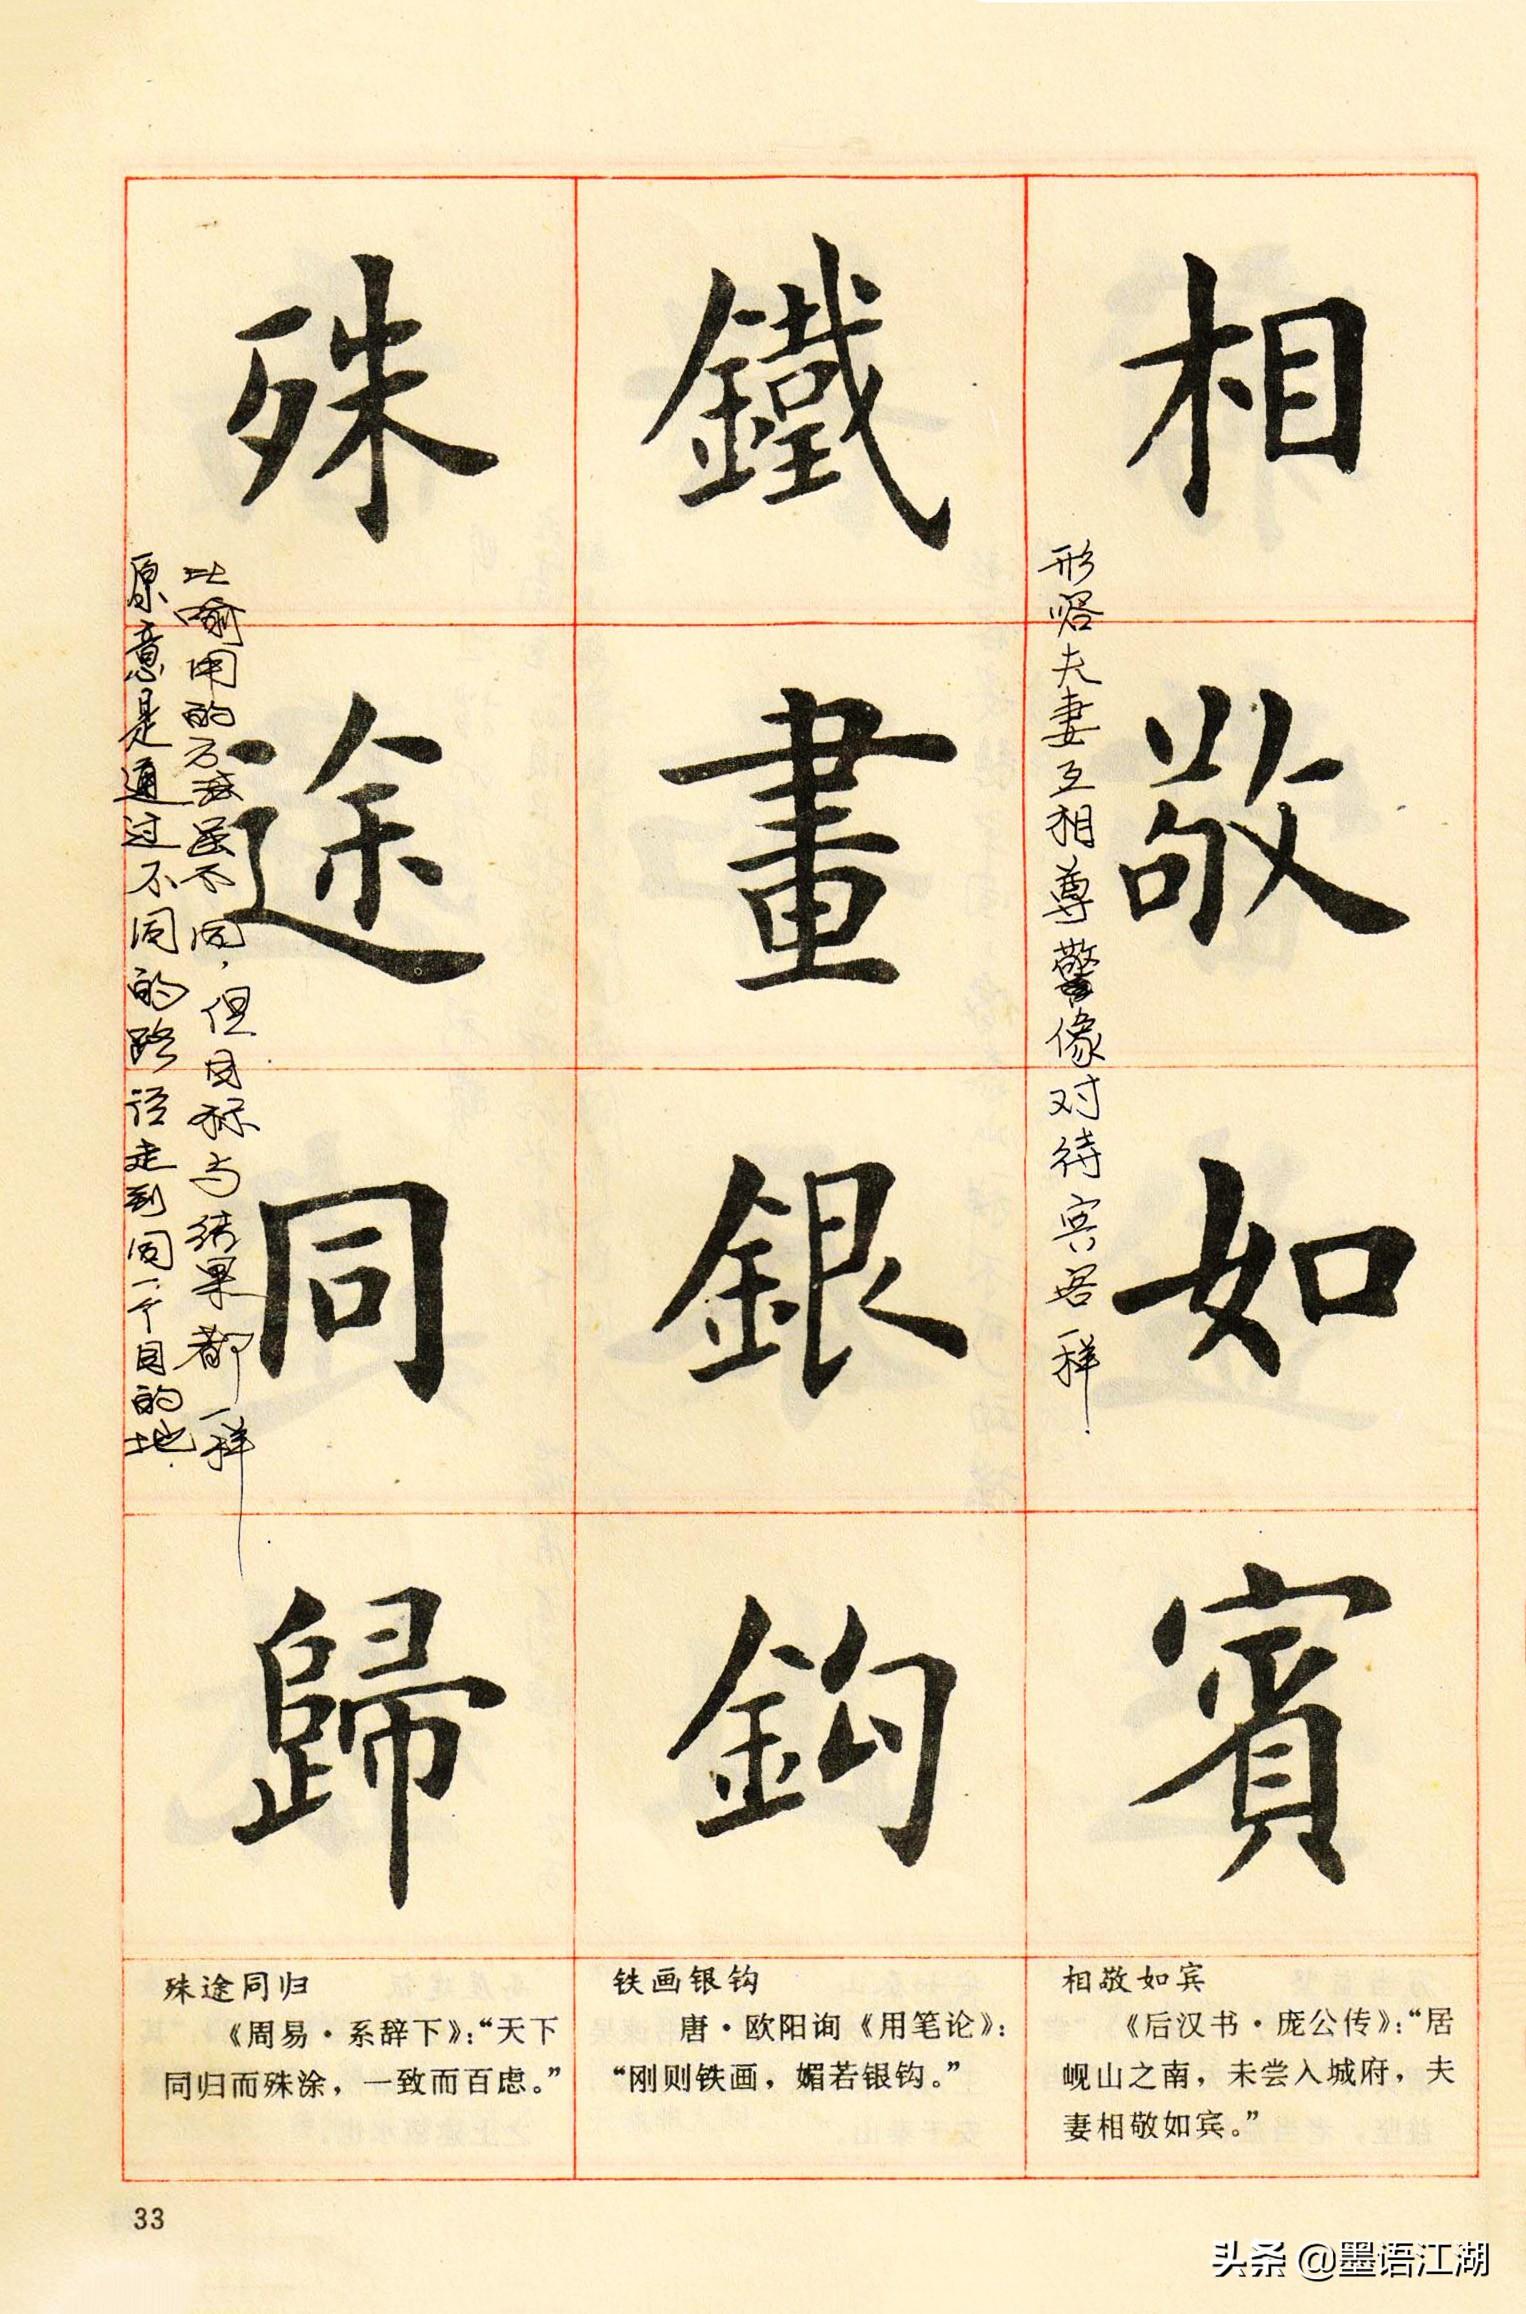 相敬如賓
形容夫妻互相尊敬像对待宾客一样
鐵畫銀鈎
殊途同歸
比喻用的方法虽不同，但目标与结果都一样
原意是通过不同的路径走到同一个目的地.
相敬如宾
《后汉书·庞公传》：“居
岘山之南，未尝入城府，夫
妻相敬如宾。”
铁画银钩
唐·欧阳询《用笔论》：
“刚则铁画，媚若银钩。”
殊途同归
《周易·系辞下》：“天下
同归而殊涂，一致而百虑。”
33
头条 @墨语江湖